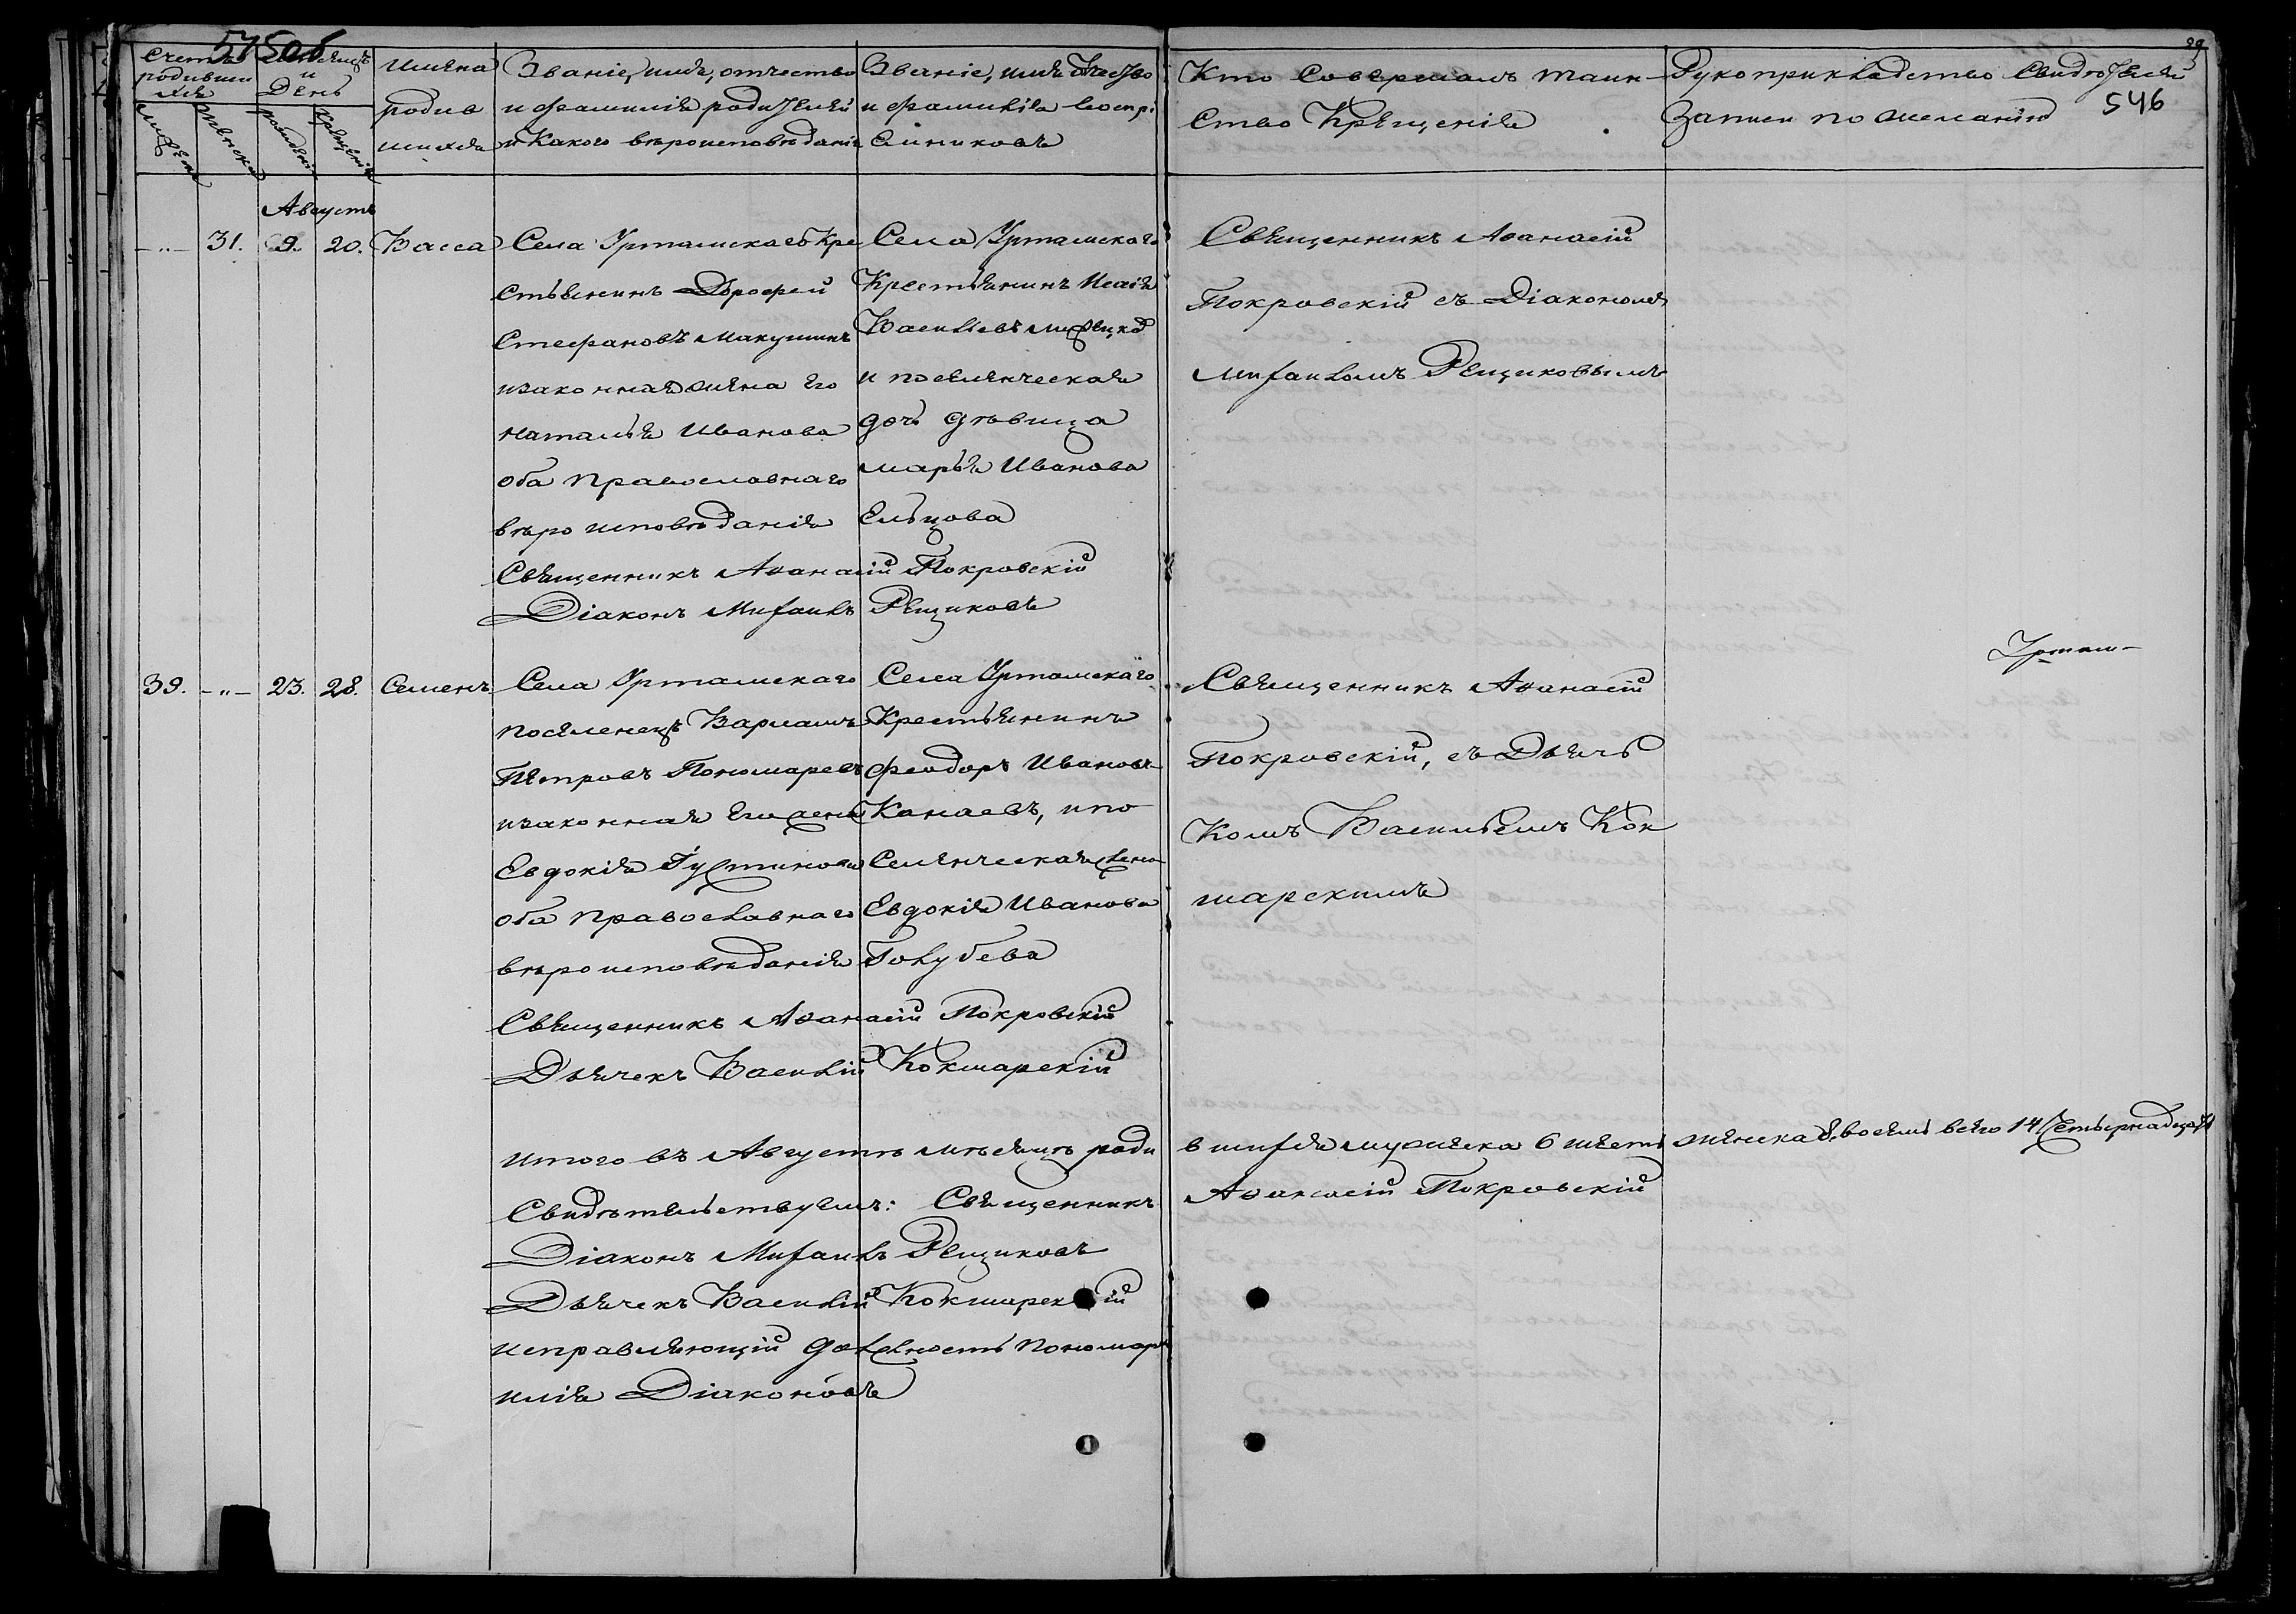 545об
546
Счетъ родившихся
Мѣсяцъ и День
Имена родившихся
Званіе, имя, отчество и фамилія родителей и какого вѣроисповѣданія
Званіе, имя отчество и фамилія воспріемниковъ
Кто совершалъ таинство Крещенія
Рукоприкладство свидѣтелей записи по желанію
рожденія
крещенія
Августъ
-"- 31. 9. 20. Васса
Села Уртамскаго Кре
стьянинъ Дорофей
Стефановъ Макушинъ
изаконная жена его
Наталья Иванова
оба Православнаго
вѣроисповѣданія
Села Уртамскаго
Крестьянинъ Исаія
Васильевъ
и поселенческая
дочь дѣвица
Марья Иванова
Ельцова
Священникъ Аѳанасій
Покровскій съ Діакономъ
Михаиломъ Рещиковымъ
Священникъ Аѳанасій Покровскій
Діаконъ Михаилъ Рещиковъ
Уртам-
39. -"- 23. 28. Семенъ
Села Уртамскаго
поселенецъ Варлаамъ
Петровъ Пономаревъ
изаконная его жена
Евдокія Іустинова
оба православнаго
вѣроисповѣданія
Села Уртамскаго
Крестьянинъ
Феодоръ Ивановъ
Канаевъ, и по
селенческая жена
Евдокія Иванова
Голубева
Священникъ Аѳанасій
Покровскій, съ Дьяч
комъ Васильемъ Кок
шарскимъ
Священникъ Аѳанасій Покровскій
Дьячекъ Василій Кокшарскій
Итого въ Августѣ мѣсяцѣ роди вшихся мужеска 6 шесть женска 8. восемь всего 14 Четырнадцать
Свидѣтельствуемъ: Священникъ Аѳанасій Покровскій
Діаконъ Михаилъ Рещиковъ
Дьячекъ Василій Кокшарскій
исправляющій должность Пономаря
Илія Діаконовъ